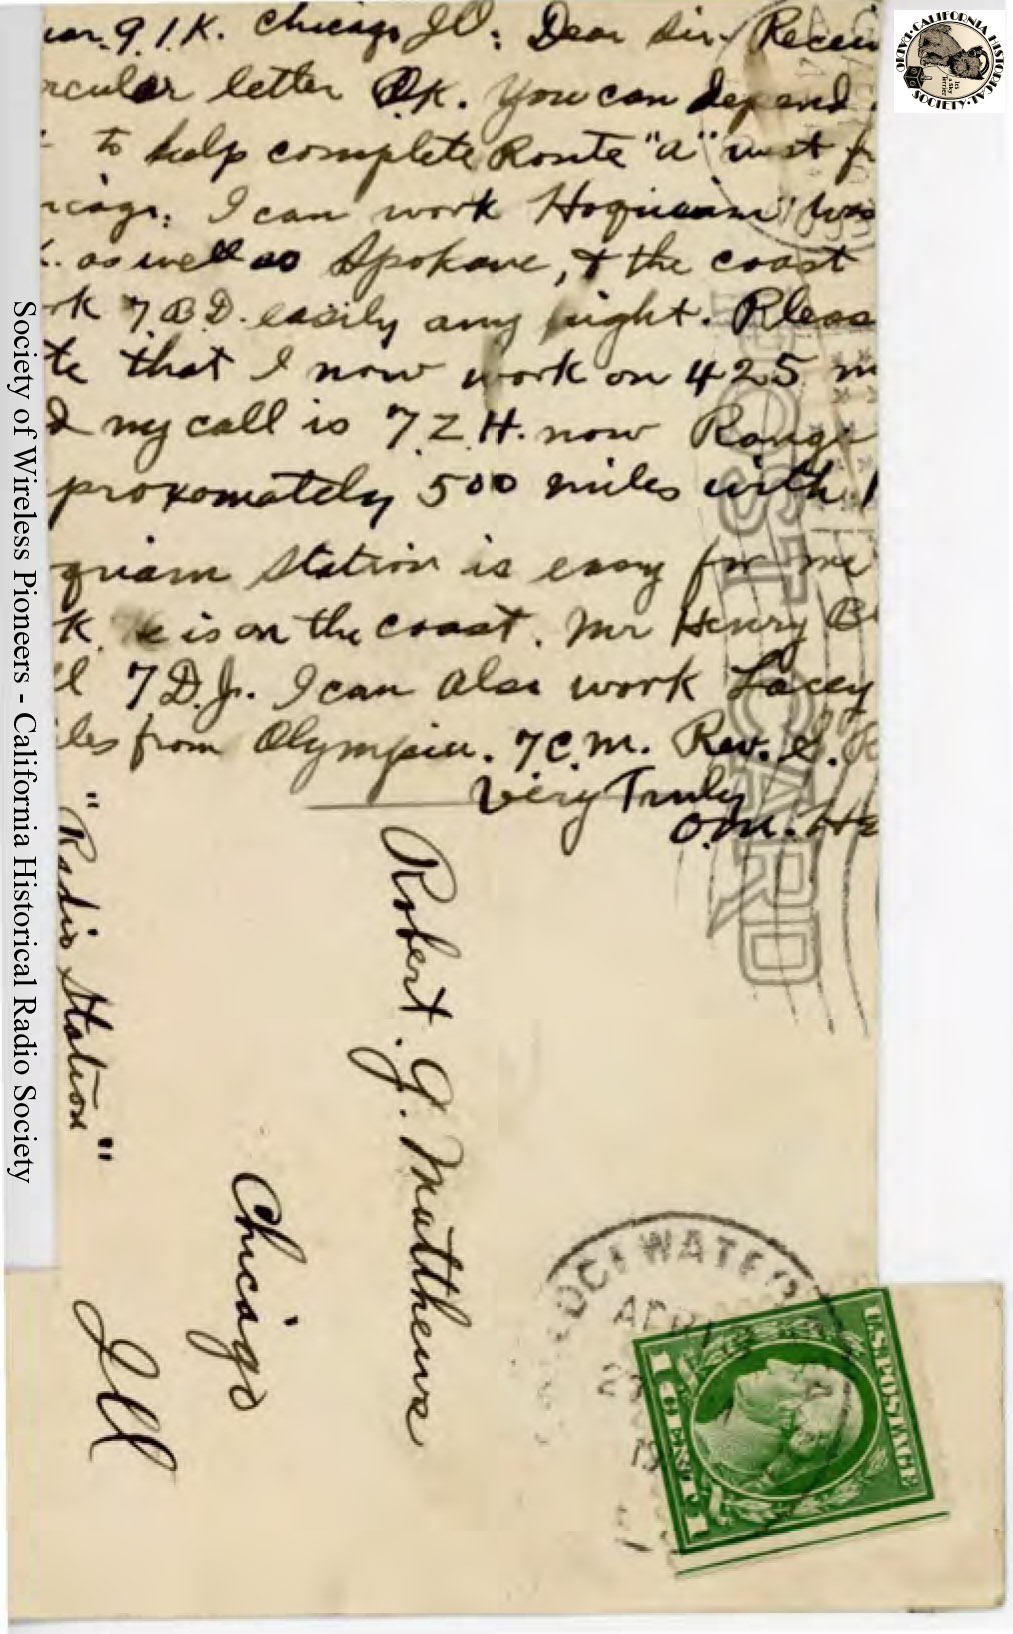 9.I.K. Chicago Ill: Dear Sir- Recei
rcular letter OK. You can depend
to help complete Route "A" west fr
icago: I can work Hoquiam Was
as well as Spokane, & the coast
rk 7.B.D. easily any night. Pleas
te that I now work on 425 m
d my call is 7.Z.H. now Range
proxomately 500 miles with 1
quiam station is easy for me
k. He is on the coast. Mr Henry B
ll 7 D.J. I can also work Lacey
iles from Olympia. 7C.M. Rev. S. R
Very Truly
O.M. He
"Radio Station"
Robert. G. Mathews
Chicago
Ill
POST CARD
WATER
APR
U.S. POSTAGE
1 CENT 1
Society of Wireless Pioneers - California Historical Radio Society
CALIFORNIA HISTORICAL RADIO SOCIETY